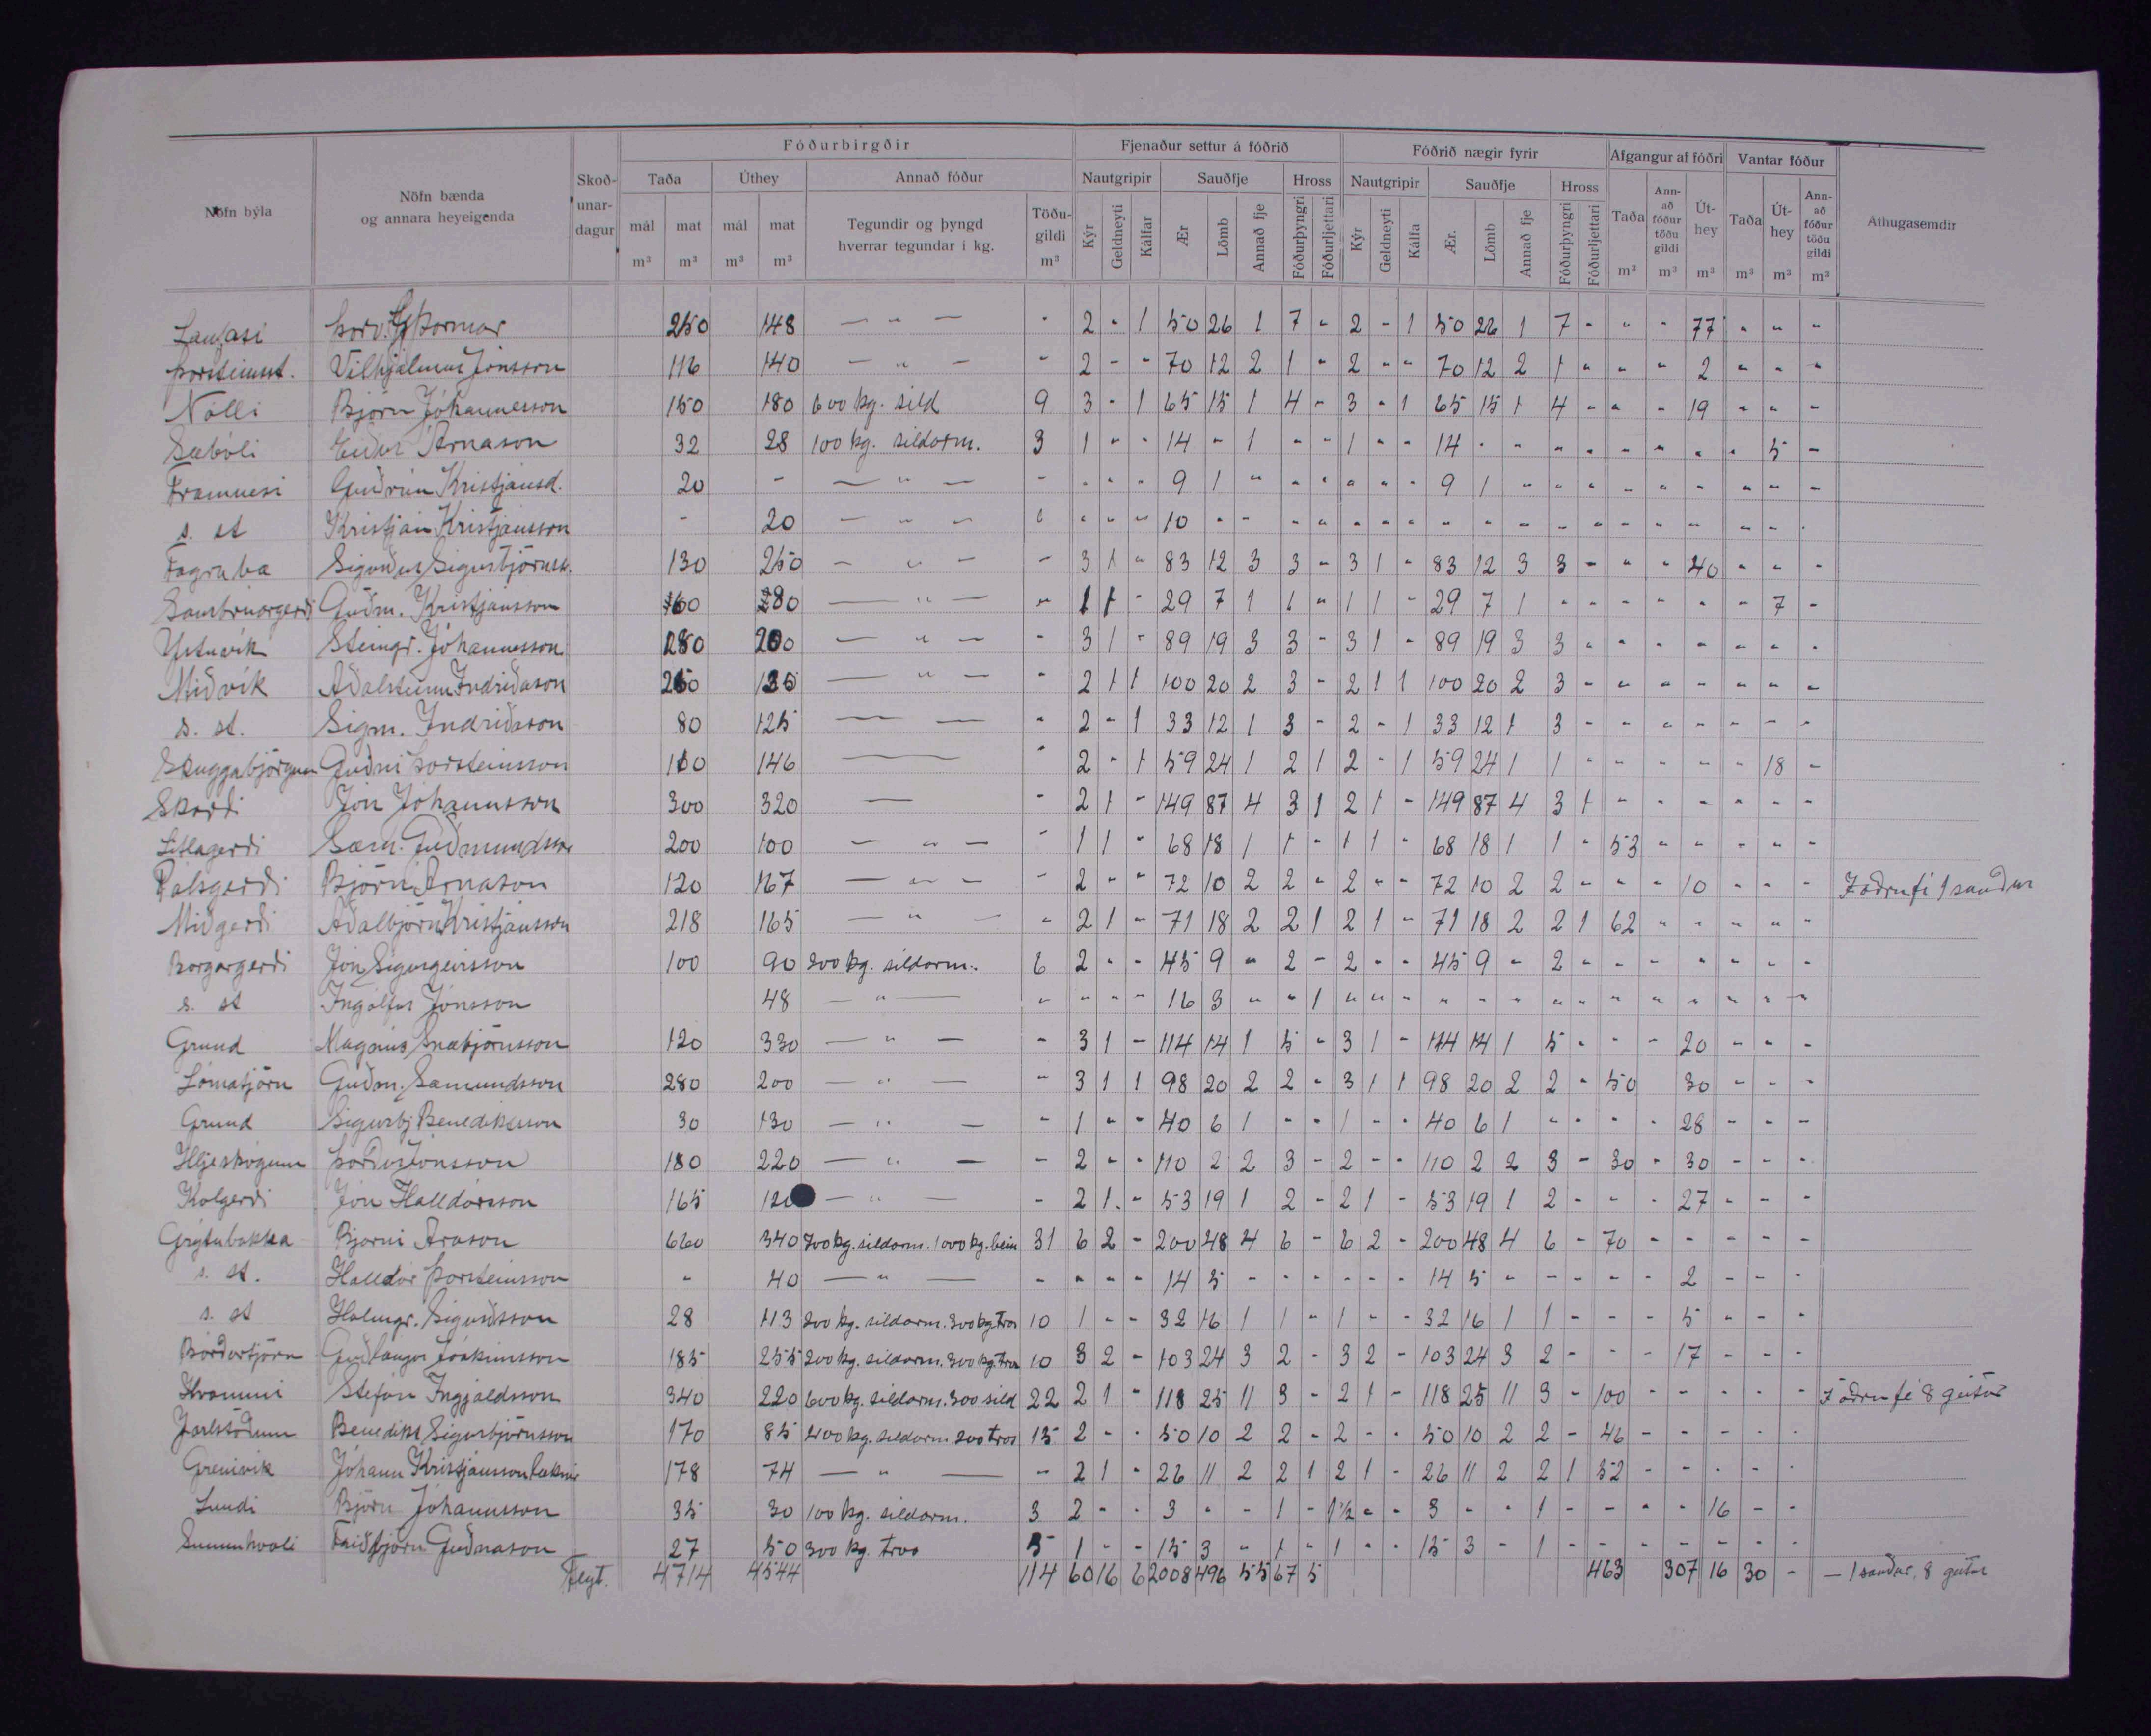 Fóðurbirgðir Fjenaður settur á fóðrið Fóðrið nægir fyrir Afgangur af fóðri Vantar fóður
Nöfn býla Nöfn bænda og annara heyeigenda Skoð-unar-dagur Taða Úthey Annað fóður Nautgripir Sauðfje Hross Nautgripir Sauðfje Hross Taða Ann-að fóður töðu gildi Út-hey Taða Út-hey Ann-að fóður töðu gildi Athugasemdir
mál mat mál mat Tegundir og þyngd hverrar tegundar í kg. Töðu-gildi Kýr Geldneyti Kálfar Ær Lömb Annað fje Fóðurþyngri Fóðurljettari Kýr Geldneyti Kálfa Ær. Lömb Annað fje Fóðurþyngri Fóðurljettari
m³ m³ m³ m³ m³ m³ m³ m³ m³ m³ m³
Laufási Þorv. Þormar 250 148 — " — - 2 - 1 50 26 1 7 - 2 - 1 50 26 1 7 - - - 77 - - -
Þorsteinsst. Vilhjálmur Jónsson 116 140 — " — - 2 - - 70 12 2 1 - 2 - - 70 12 2 1 - - - 2 - - -
Nolli Björn Jóhannesson 150 180 600 kg. síld 9 3 - 1 65 15 1 4 - 3 - 1 65 15 1 4 - - - 19 - - -
Sæbóli Árnason 32 28 100 kg. síldarm. 3 1 - - 14 - 1 - - 1 - - 14 - - - - - - - - 5 -
Framnesi Guðrún Kristjánsd. 20 - — " — - - - - 9 1 - - - - - - 9 1 - - - - - - - - -
s. st Kristján Kristjánsson - 20 — " — - - - 10 - - - - - - - - - - - - - - - - - -
Fagrabæ Sigurður Sigurbjörnss. 130 250 — " — - 3 1 - 83 12 3 3 - 3 1 - 83 12 3 3 - - - 40 - - -
Guðm. Kristjánsson 160 280 — " — - 1 1 - 29 7 1 1 - 1 1 - 29 7 1 - - - - - - 7 -
Ystuvík Steingr. Jóhannesson 280 200 — " — - 3 1 - 89 19 3 3 - 3 1 - 89 19 3 3 - - - - - - -
Miðvík Aðalsteinn Indriðason — " — - 2 1 1 100 20 2 3 - 2 1 1 100 20 2 3 - - - - - - -
s. st. Sigm. Indriðason 80 125 — — - 2 - 1 33 12 1 3 - 2 - 1 33 12 1 3 - - - - - - -
Skuggabjörgum Guðni Þorsteinsson 146 — - 2 - 1 59 24 1 2 1 2 - 1 59 24 1 1 - - - - - 18 -
Skarði Jón Jóhannsson 300 320 — - 2 1 - 149 87 4 3 1 2 1 - 149 87 4 3 1 - - - - - -
Litlagerði Sæm. Guðmundsson 200 100 — " — - 1 1 - 68 18 1 1 - 1 1 - 68 18 1 1 - 53 - - - - -
Pálsgerði Björn Árnason 120 167 — " — - 2 - - 72 10 2 2 - 2 - - 72 10 2 2 - - - 10 - - - Í öðru fé 1 sauður
Miðgerði Aðalbjörn Kristjánsson 218 165 — " — - 2 1 - 71 18 2 2 1 2 1 - 71 18 2 2 1 62 - - - - -
Borgargerði Jón Sigurgeirsson 100 90 200 kg. síldarm. 6 2 - - 45 9 - 2 - 2 - - 45 9 - 2 - - - - - - -
s. st Ingólfur Jónsson 48 — " — - - - - 16 3 - - 1 - - - - - - - - - - - - - -
Grund Magnús Snæbjörnsson 120 330 — " — - 3 1 - 114 14 1 5 - 3 1 - 114 14 1 5 - - - 20 - - -
Lómatjörn Guðm. Sæmundsson 280 200 — " — - 3 1 1 98 20 2 2 - 3 1 1 98 20 2 2 - 50 30 - - -
Grund Sigurbj Benediktsson 30 130 — " — - 1 - - 40 6 1 - - 1 - - 40 6 1 - - - - 28 - - -
Hljeskógum Þórður Jónsson 180 220 — " — - 2 - - 110 2 2 3 - 2 - - 110 2 2 3 - 30 - 30 - - -
Kolgerði Jón Halldórsson 165 120 — " — - 2 1 - 53 19 1 2 - 2 1 - 53 19 1 2 - - - 27 - - -
Grýtubakka Bjarni Arason 660 340 700 kg. síldarm. 1000 kg. bein 31 6 2 - 200 48 4 6 - 6 2 - 200 48 4 6 - 70 - - - - -
s. st. Halldór Þorsteinsson - 40 — " — - - - - 14 5 - - - - - - 14 5 - - - - - 2 - - -
s. st Hólmgr. Sigurðsson 28 113 200 kg. síldarm. 300 kg. tros 10 1 - - 32 16 1 1 - 1 - - 32 16 1 1 - - - 5 - - -
Bárðartjörn Guðlaugur Jóakimsson 185 255 200 kg. síldarm. 300 kg. tros 10 3 2 - 103 24 3 2 - 3 2 - 103 24 3 2 - - - 17 - - -
Hvammi Stefán Ingjaldsson 340 220 600 kg. síldarm. 300 síld 22 2 1 - 118 25 11 3 - 2 1 - 118 25 11 3 - 100 - - - - - Í öðru fé 8 geitur
Jarlstöðum Benedikt Sigurbjörnsson 170 85 400 kg. síldarm. 200 tros 15 2 - - 50 10 2 2 - 2 - - 50 10 2 2 - 46 - - - - -
Grenivík Jóhann Kristjánsson læknir 178 74 — " — - 2 1 - 26 11 2 2 1 2 1 - 26 11 2 2 1 32 - - - - -
Lundi Björn Jóhannsson 35 30 100 kg. síldarm. 3 2 - - 3 - - 1 - 1½ - - 3 - - 1 - - - - 16 - -
Sunnuhvoli Friðbjörn Guðnason 27 50 300 kg. tros 5 1 - - 15 3 - 1 - 1 - - 15 3 - 1 - - - - - - -
Flyt. 4714 4544 114 60 16 6 2008 496 55 67 5 463 307 16 30 - — 1 sauður, 8 geitur